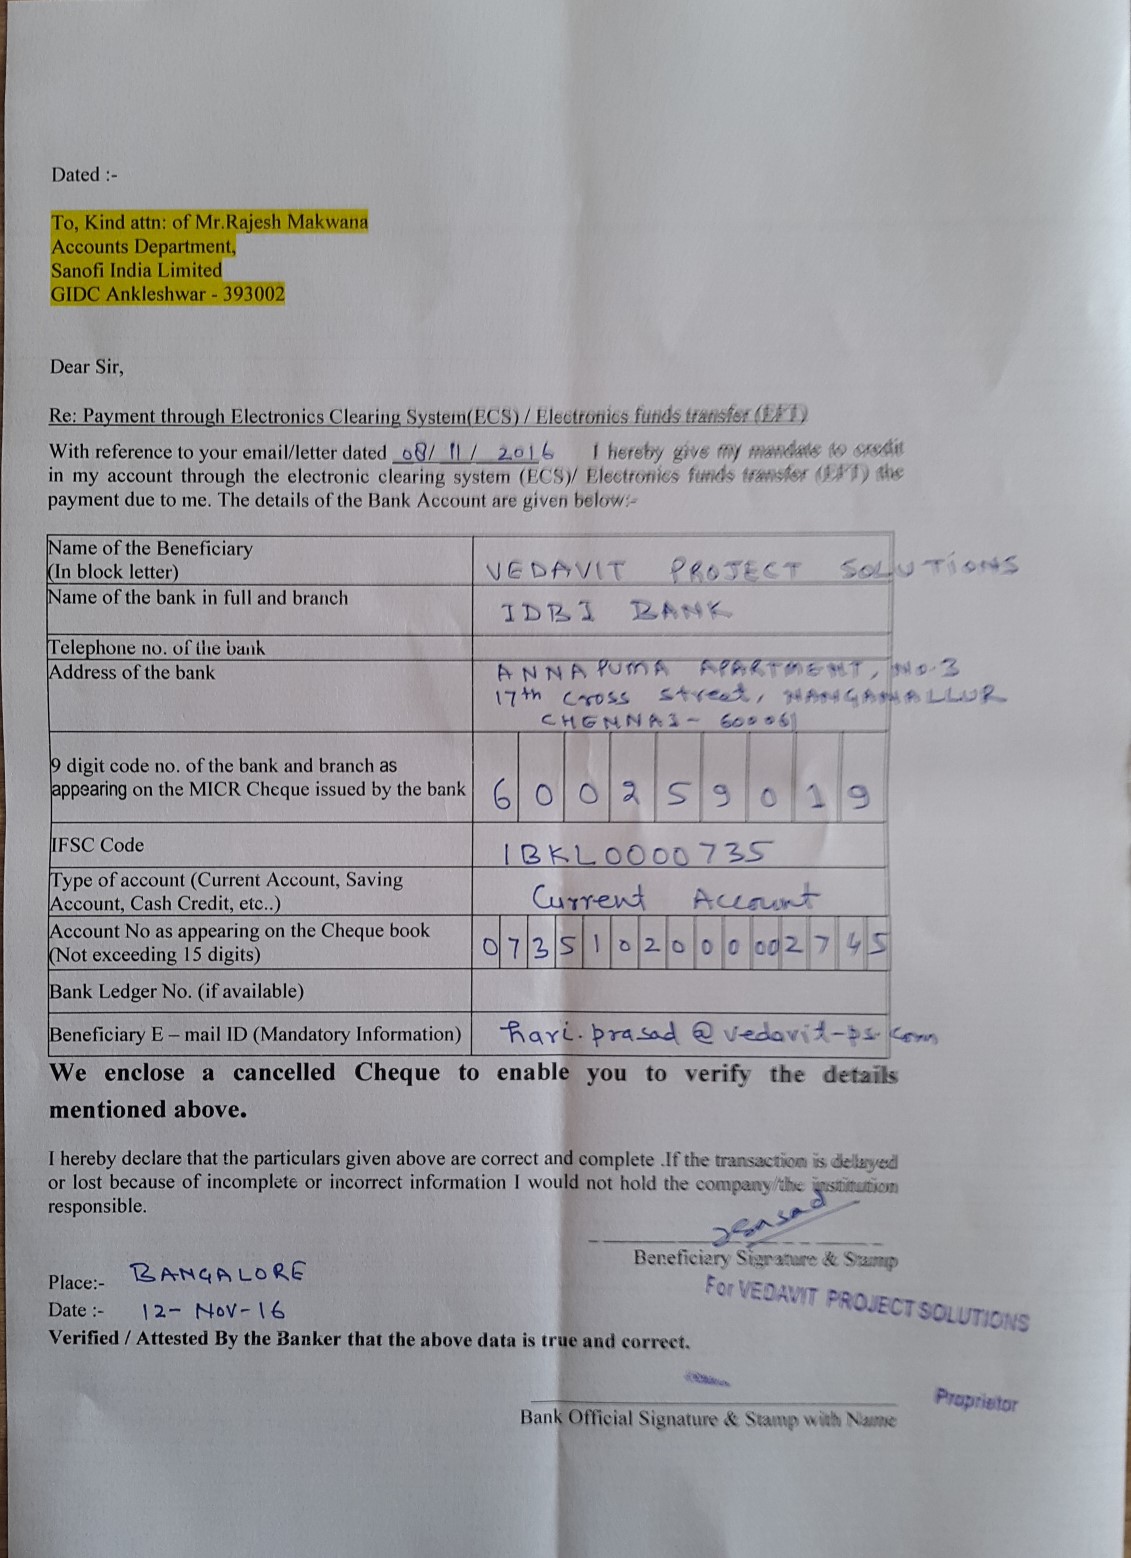 Dated :-
To, Kind attn: of Mr.Rajesh Makwana
Accounts Department,
Sanofi India Limited
GIDC Ankleshwar - 393002
Dear Sir,
Re: Payment through Electronics Clearing System(ECS) / Electronics funds transfer (EFT)
With reference to your email/letter dated 08/ 11 / 2016 I hereby give my mandate to credit
in my account through the electronic clearing system (ECS)/ Electronics funds transfer (EFT) the
payment due to me. The details of the Bank Account are given below:-
Name of the Beneficiary
(In block letter) VEDAVIT PROJECT SOLUTIONS
Name of the bank in full and branch IDBI BANK
Telephone no. of the bank
Address of the bank ANNAPURNA APARTMENT, NO.3
17th Cross Street, NANGANALLUR
CHENNAI - 600061
9 digit code no. of the bank and branch as
appearing on the MICR Cheque issued by the bank 6 0 0 2 5 9 0 1 9
IFSC Code IBKL0000735
Type of account (Current Account, Saving
Account, Cash Credit, etc..) Current Account
Account No as appearing on the Cheque book
(Not exceeding 15 digits) 0 7 3 5 1 0 2 0 0 0 00 2 7 4 5
Bank Ledger No. (if available)
Beneficiary E – mail ID (Mandatory Information) hari.prasad@vedavit-ps.com
We enclose a cancelled Cheque to enable you to verify the details
mentioned above.
I hereby declare that the particulars given above are correct and complete .If the transaction is delayed
or lost because of incomplete or incorrect information I would not hold the company/the institution
responsible.
Beneficiary Signature & Stamp
Place:- BANGALORE
For VEDAVIT PROJECT SOLUTIONS
Date :- 12- NOV-16
Verified / Attested By the Banker that the above data is true and correct.
Proprietor
Bank Official Signature & Stamp with Name